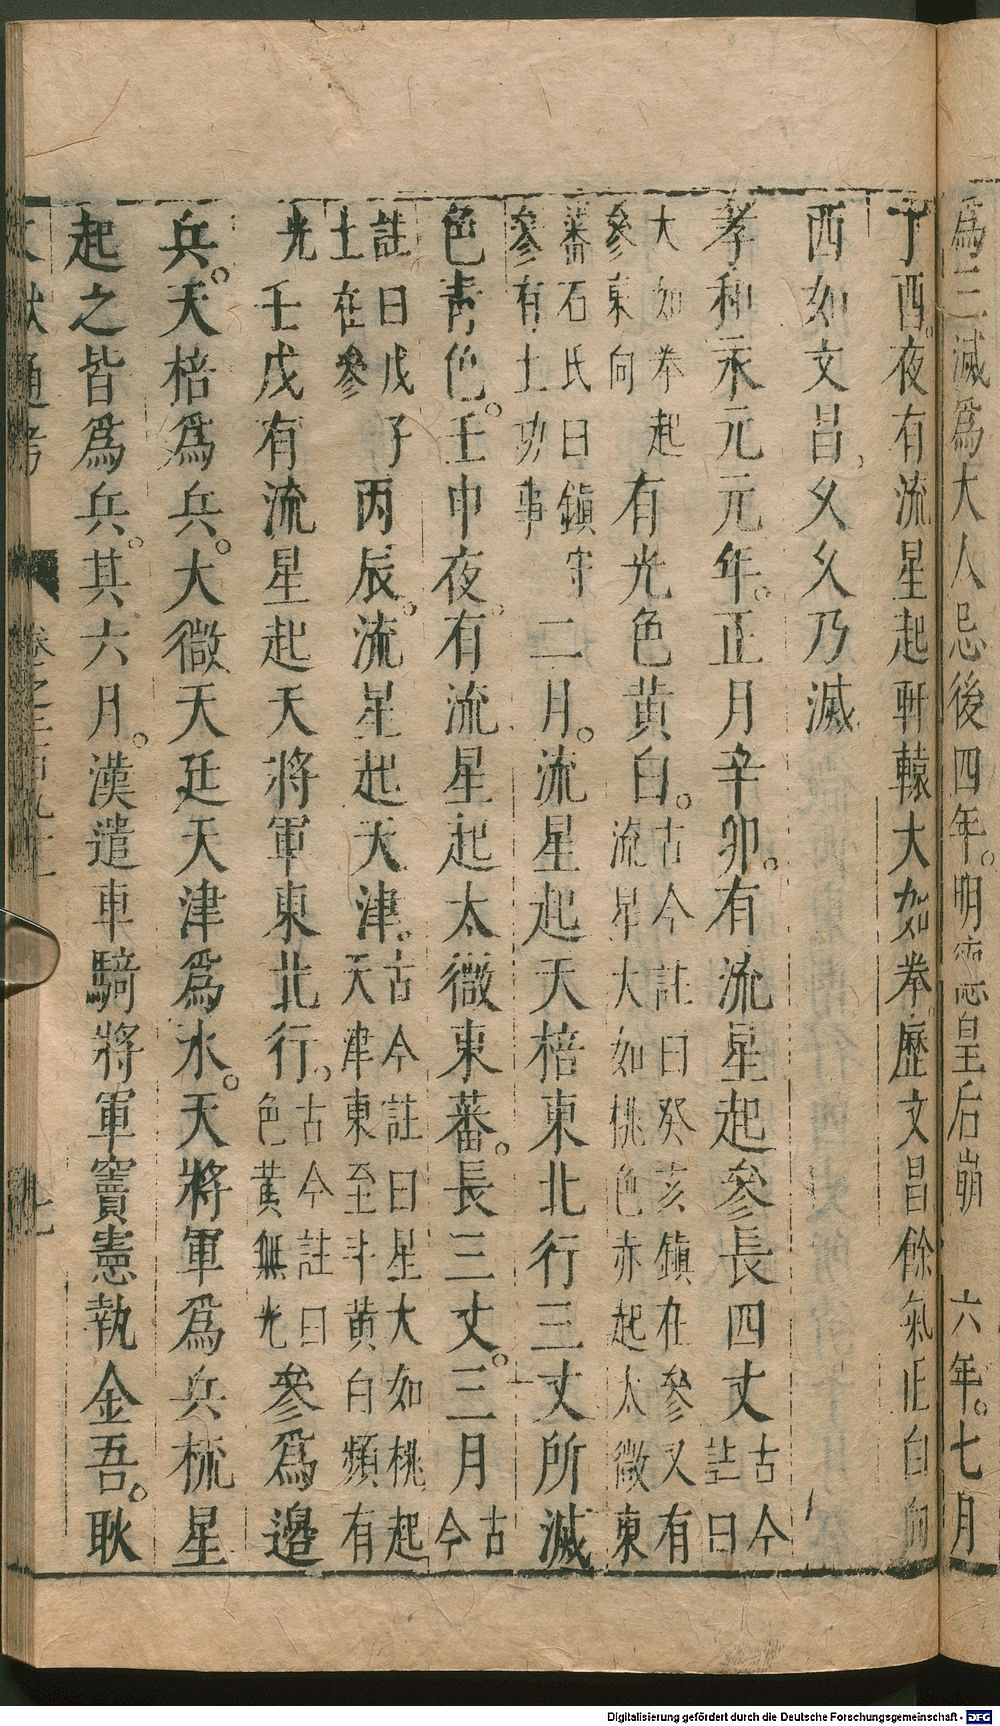 為三滅為大人忌後四年。明德皇后崩　六年。七月
丁酉。夜有流星起軒轅大如拳。歷文昌餘氣正白句
西如文昌久久乃滅
孝和永元元年。正月辛卯。有流星起參長四丈古今註曰
大如拳起參東向有光色黃白。古今註曰癸亥鎮在參又有流星大如桃色赤起太微東
蕃石氏曰鎮守參有土功事二月。流星起天棓東北行三丈所滅
色青色。壬申夜。有流星起太微東蕃。長三丈。三月古今
註曰戊子土在參丙辰。流星起天津。古今註曰星大如桃起天津東至斗黃白頻有
光壬戌有流星起天將軍東北行。古今註曰色黃無光參為邊
兵。天棓為兵。大微天廷天津為水。天將軍為兵梳星
起之皆為兵。其六月。漢遣車騎將軍竇憲執金吾。耿
文獻通考　卷之二百九十一　七
Digitalisierung gefördert durch die Deutsche Forschungsgemeinschaft - DFG